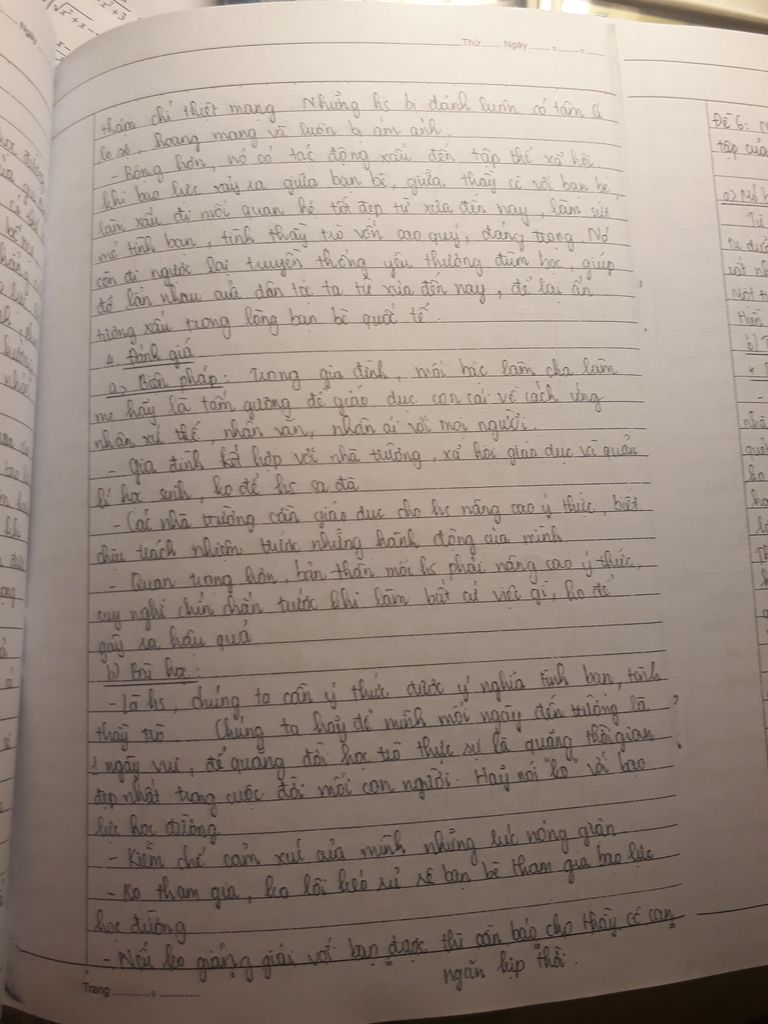 Thứ ........ Ngày ........
thậm chí thiệt mạng. Những hs bị đánh luôn có tâm lí
lo sợ, hoang mang và luôn bị ám ảnh.
- Rộng hơn, nó có tác động xấu đến tập thể xã hội
khi bạo lực xảy ra giữa bạn bè, giữa thầy cô với bạn bè,
làm xấu đi mối quan hệ tốt đẹp từ xưa đến nay, làm
mẻ tình bạn, tình thầy trò vốn cao quý, đáng trọng. Nó
còn đi ngược lại truyền thống yêu thương đùm bọc, giúp
đỡ lẫn nhau của dân tộc ta từ xưa đến nay, để lại ấn
tượng xấu trong lòng bạn bè quốc tế.
4. Đánh giá
a) Biện pháp: Trong gia đình, mỗi bậc làm cha làm
mẹ hãy là tấm gương để giáo dục con cái về cách ứng
nhân xử thế, nhân văn, nhân ái với mọi người.
- Gia đình kết hợp với nhà trường, xã hội giáo dục và quản
lí học sinh, ko để hs sa đà
- Các nhà trường cần giáo dục cho hs nâng cao ý thức, biết
chịu trách nhiệm trước những hành động của mình
- Quan trọng hơn, bản thân mỗi hs phải nâng cao ý thức,
suy nghĩ chín chắn trước khi làm bất cứ việc gì, ko để
gây ra hậu quả
b) Bài học:
- Là hs, chúng ta cần ý thức được ý nghĩa tình bạn, tình
thầy trò. Chúng ta hãy để mình mỗi ngày đến trường là
1 ngày vui, để quãng đời học trò thực sự là quãng thời gian
đẹp nhất trong cuộc đời mỗi con người. Hãy nói "ko" với bạo
lực học đường
- Kiềm chế cảm xúc của mình những lúc nóng giận
- Ko tham gia, ko lôi kéo bạn bè tham gia bạo lực
học đường
- Nếu ko giảng giải với bạn được thì cần báo cho thầy cô can
ngăn kịp thời.
Trang ........
Đề 6:
tập của